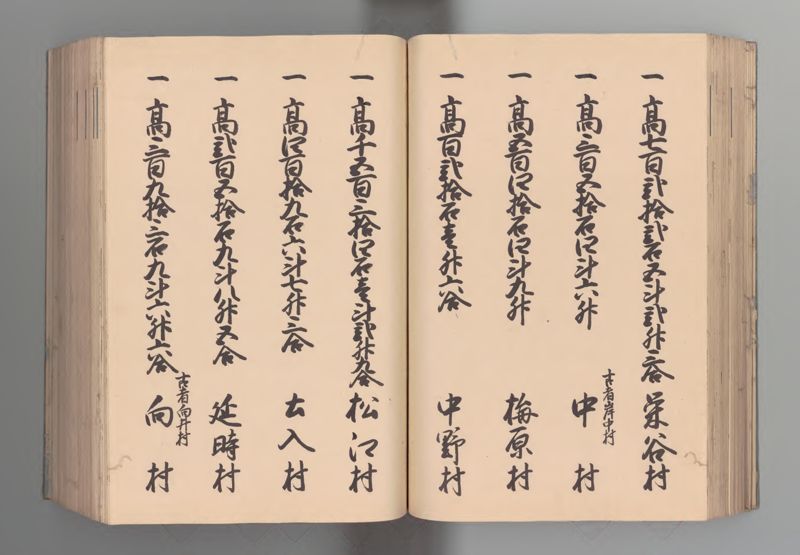 一 高七百弐拾弐石五斗弐升三合 栄谷村
一 高三百五拾石四斗六升 中村
古者岸中村
一 高五百四拾石四斗九升 梅原村
一 高百弐拾石壱升六合 中野村
一 高千五百三拾四石壱斗弐升九合 松江村
一 高四百拾九石六斗七升三合 土入村
一 高弐百五拾石九斗八升五合 延時村
一 高三百九拾三石九斗六升六合 向村
古者向井村